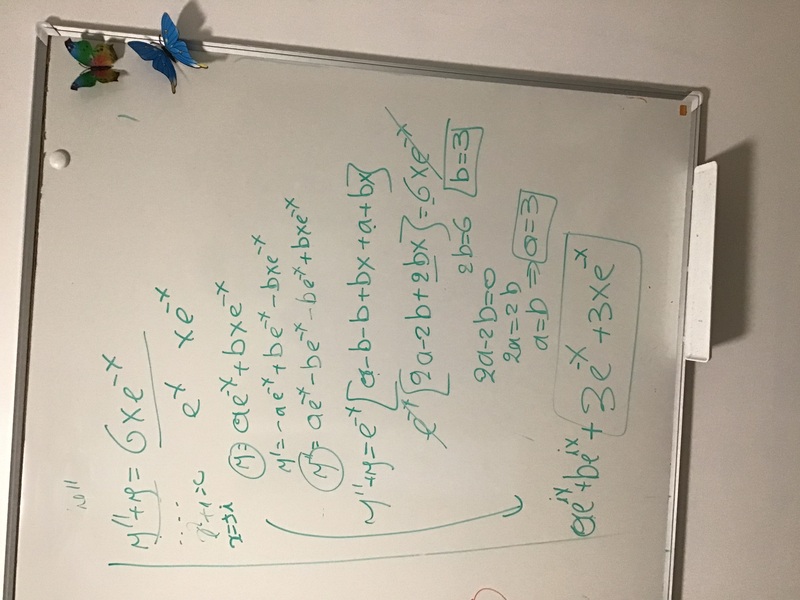 y''+y = 6xe^-x
e^x xe^-x
r²+1=0
r=±i
y = ae^-x+bxe^-x
y'=-ae^-x+be^-x-bxe^-x
y''= ae^-x-be^-x-be^-x+bxe^-x
y''+y=e^-x[a-b-b+bx+a+bx]
e^-x[2a-2b+2bx]=6xe^-x
2b=6 b=3
2a-2b=0
2a=2b
a=b ⇒ a=3
ae^ix+be^ix+3e^-x+3xe^-x